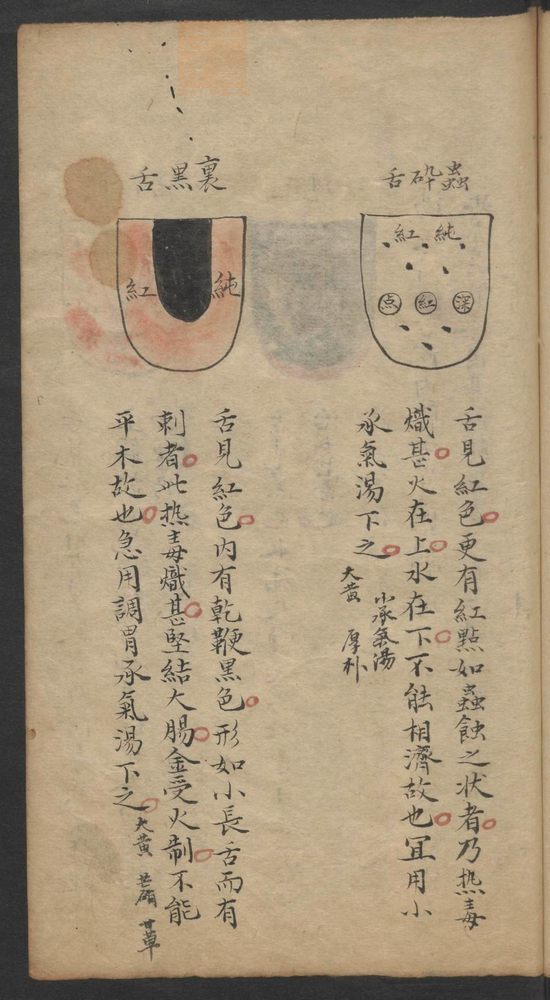 蟲碎舌
純紅
深紅点
舌見紅色更有紅點如蟲蝕之状者乃热毒
熾甚火在上水在下不能相濟故也宜用小
承氣湯下之
小承氣湯
大黄 厚朴
裏黑舌
純紅
舌見紅色内有乾鞕黑色形如小長舌而有
刺者此热毒熾甚堅結大腸金受火制不能
平木故也急用調胃承氣湯下之 大黄 芒硝 甘草